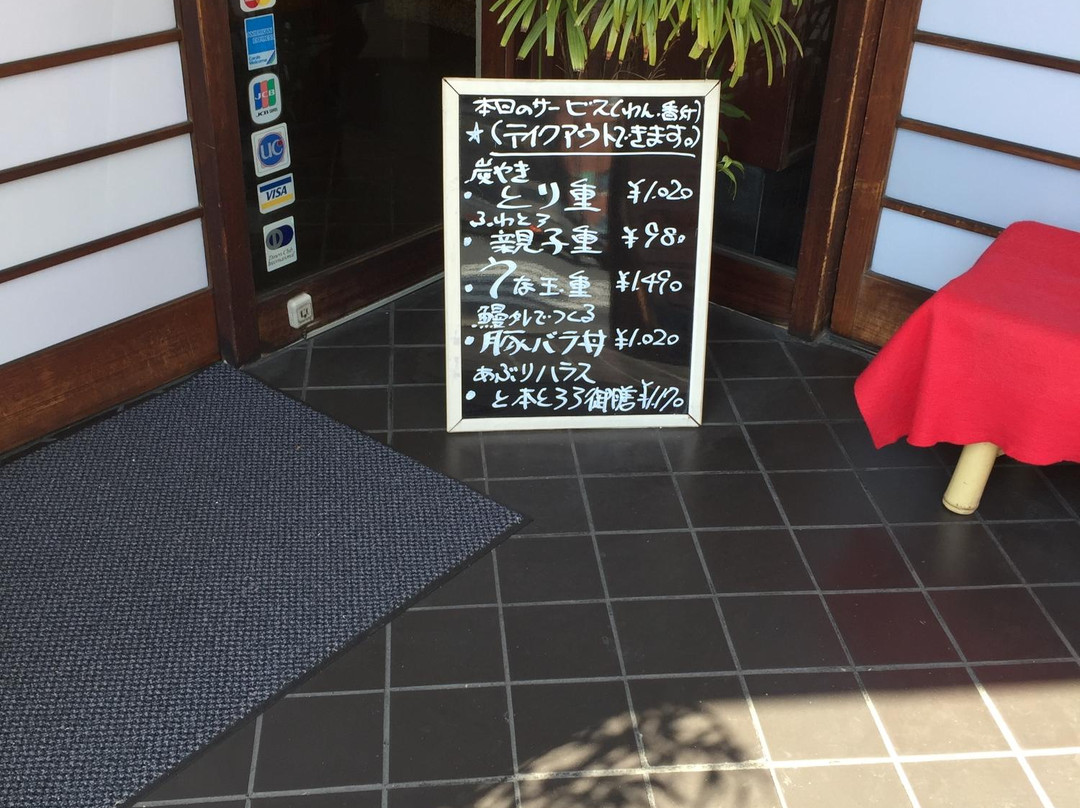 AMERICAN EXPRESS
JCB
UC
VISA
Diners Club
International
本日のサービス(わん・香付)
★(テイクアウトできます。)
炭やき
・とり重 ¥1.020
ふわとろ
・親子重 ¥980
・うな玉重 ¥1.490
鰻タレでつくる
・豚バラ丼 ¥1.020
あぶりハラス
・と本とろろ御膳 ¥1.170